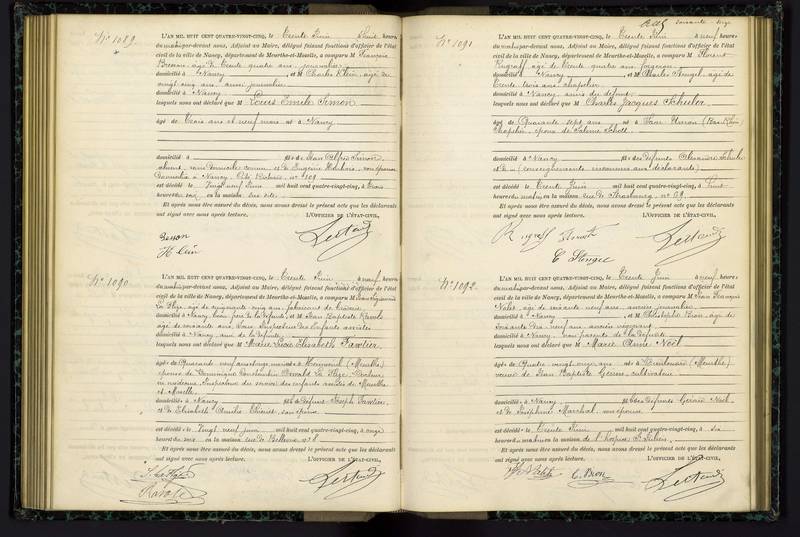 N° 1089
L'AN MIL HUIT CENT QUATRE-VINGT-CINQ, le Trente Juin, huit heures
du matin par-devant nous, Adjoint au Maire, délégué faisant fonctions d'officier de l'état
civil de la ville de Nancy, département de Meurthe-et-Moselle, a comparu M François
âgé de trente quatre ans, journalier
domicilié à Nancy, et M Charles Klein, âgé de
vingt cinq ans, journalier
domicilié à Nancy
lesquels nous ont déclaré que M Louis Emile Simon
âgé de Trois ans et neuf mois né à Nancy
domicilié à fils de Jean Alfred Simon
absent, sans domicile connu, et de Eugénie son épouse
domiciliée à Nancy, n° 109
est décédé le Vingt neuf Juin mil huit cent quatre-vingt-cinq, à trois
heures du soir en la maison
Et après nous être assuré du décès, nous avons dressé le présent acte que les déclarants
ont signé avec nous après lecture. L'OFFICIER DE L'ÉTAT-CIVIL,
Klein
N° 1090
L'AN MIL HUIT CENT QUATRE-VINGT-CINQ, le Trente Juin, à neuf heures
du matin par-devant nous, Adjoint au Maire, délégué faisant fonctions d'officier de l'état
civil de la ville de Nancy, département de Meurthe-et-Moselle, a comparu M Jean
La Flize, âgé de cinquante cinq ans, fabricant de
domicilié à Nancy, et M Jean Baptiste
âgé de soixante ans, Sous Inspecteur des Enfants assistés
domicilié à Nancy, ami de la défunte
lesquels nous ont déclaré que Marie Elisabeth
âgée de Quarante neuf ans née à (Meurthe)
épouse de Dominique La Flize, Docteur
en médecine, Inspecteur du service des enfants assistés de Meurthe
et Moselle
domiciliée à Nancy fille de défunt Joseph
et de Elisabeth Amélie son épouse
est décédée le Vingt neuf juin mil huit cent quatre-vingt-cinq, à onze
heures du soir en la maison rue de n° 8
Et après nous être assuré du décès, nous avons dressé le présent acte que les déclarants
ont signé avec nous après lecture. L'OFFICIER DE L'ÉTAT-CIVIL,
soixante
N° 1091
L'AN MIL HUIT CENT QUATRE-VINGT-CINQ, le Trente Juin à neuf heures
du matin par-devant nous, Adjoint au Maire, délégué faisant fonctions d'officier de l'état
civil de la ville de Nancy, département de Meurthe-et-Moselle, a comparu M Florent
âgé de trente quatre ans, forgeron
domicilié à Nancy, et M Charles Stengel, âgé de
trente trois ans, chapelier
domicilié à Nancy, amis du défunt
lesquels nous ont déclaré que M Charles Jacques Schuler
âgé de Quarante sept ans né à Saar Union (Bas Rhin)
Chapelier, époux de Salomé Schott
domicilié à Nancy fils des défunts Alexandre Schuler
et de (renseignements inconnus aux déclarants)
est décédé le Trente Juin mil huit cent quatre-vingt-cinq, à huit
heures du matin en la maison rue de Strasbourg, n° 69
Et après nous être assuré du décès, nous avons dressé le présent acte que les déclarants
ont signé avec nous après lecture. L'OFFICIER DE L'ÉTAT-CIVIL,
C Stengel
N° 1092
L'AN MIL HUIT CENT QUATRE-VINGT-CINQ, le Trente Juin à neuf heures
du matin par-devant nous, Adjoint au Maire, délégué faisant fonctions d'officier de l'état
civil de la ville de Nancy, département de Meurthe-et-Moselle, a comparu M Jean François
âgé de soixante neuf ans, ancien journalier
domicilié à Nancy, et M Christophe Bron, âgé de
soixante dix neuf ans, ancien
domicilié à Nancy, non parents de la défunte
lesquels nous ont déclaré que M Marie Anne Noël
âgée de Quatre vingt onze ans née à (Meurthe)
veuve de Jean Baptiste cultivateur
domiciliée à Nancy fille des défunts Gérard Noël
et de Joséphine Marchal, son épouse
est décédée le Trente Juin mil huit cent quatre-vingt-cinq, à six
heures du matin en la maison de l'hospice St Julien
Et après nous être assuré du décès, nous avons dressé le présent acte que les déclarants
ont signé avec nous après lecture. L'OFFICIER DE L'ÉTAT-CIVIL,
C. Bron